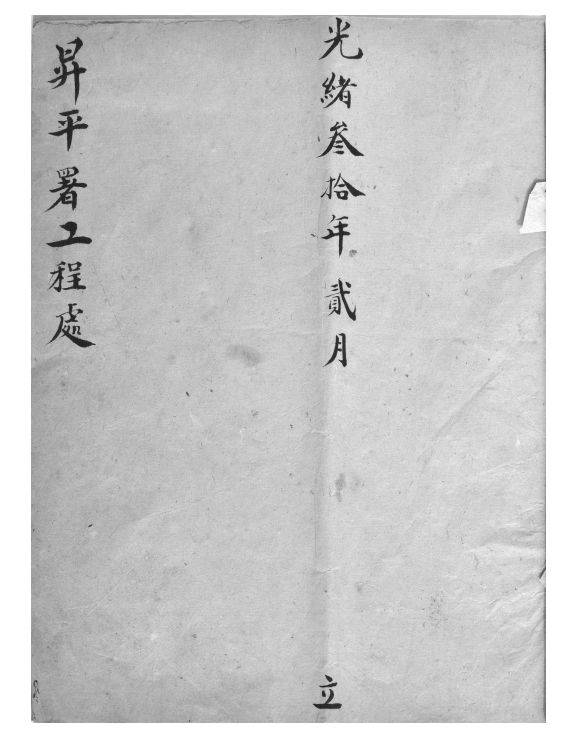 光緒叁拾年貳月
立
昇平署工程處